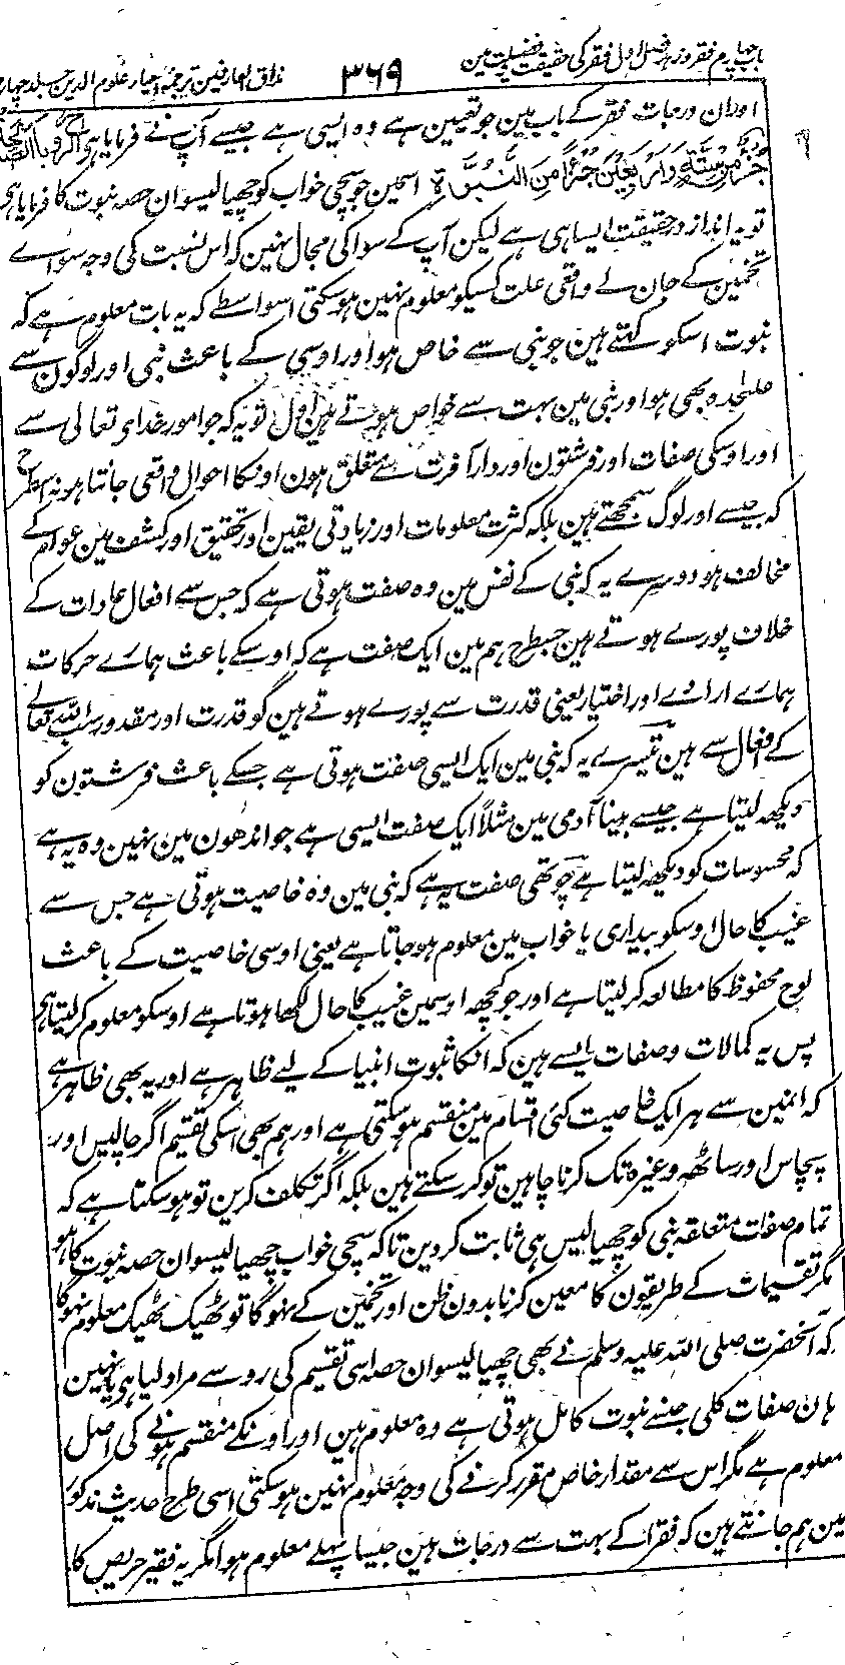 باب چہارم فقر و زہد فصل اول فقر کی حقیقت فضیلت مین
۳۶۹
مذاق العارفین ترجمہ احیاء علوم الدین جلد چہارم
اور ان درجات فقر کے باب مین جو تخمین ہے وہ ایسی ہے جیسے آپ نے فرمایا ہے الرؤیا الصالحۃ
جزء من ستۃ واربعین جزءًا من النبوۃ اسمین جو سچی خواب کو چھیالیسوان حصہ نبوت کا فرمایا ہے
تو یہ انداز در حقیقت ایسا ہی ہے لیکن آپ کے سوا کی مجال نہین کہ اس نسبت کی وجہ سواے
تخمین کے جان لے واقعی علت کسیکو معلوم نہین ہو سکتی اسواسطے کہ یہ بات معلوم ہے کہ
نبوت اسکو کہتے ہین جو نبی سے خاص ہو اور اوسی کے باعث نبی اور لوگون سے
علٰحدہ بھی ہو اور نبی مین بہت سے خواص ہوتے ہین اول تو یہ کہ جو امور خداے تعالی سے
اور اوسکی صفات اور فرشتون اور دار آخرت سے متعلق ہون اونکا احوال واقعی جانتا ہو نہ اسطرح
کہ جیسے اور لوگ سمجھتے ہین بلکہ کثرت معلومات اور زیادتی یقین اور تحقیق اور کشف مین عوام کے
مخالف ہو دوسرے یہ کہ نبی کے نفس مین وہ صفت ہوتی ہے کہ جس سے افعال عادات کے
خلاف پورے ہوتے ہین جسطرح ہم مین ایک صفت ہے کہ اوسکے باعث ہمارے حرکات
ہمارے ارادے اور اختیار یعنی قدرت سے پورے ہوتے ہین گو قدرت اور مقدور سب اللہ تعالے
کے افعال سے ہین تیسرے یہ کہ نبی مین ایک ایسی صفت ہوتی ہے جسکے باعث فرشتون کو
دیکھ لیتا ہے جیسے بینا آدمی مین مثلاً ایک صفت ایسی ہے جو اندھون مین نہین وہ یہ ہے
کہ محسوسات کو دیکھ لیتا ہے چوتھی صفت یہ ہے کہ نبی مین وہ خاصیت ہوتی ہے جس سے
غیب کا حال اوسکو بیداری یا خواب مین معلوم ہو جاتا ہے یعنی اوسی خاصیت کے باعث
لوح محفوظ کا مطالعہ کر لیتا ہے اور جو کچھ اوسمین غیب کا حال لکھا ہوتا ہے اوسکو معلوم کر لیتا ہے
پس یہ کمالات و صفات ایسے ہین کہ انکا ثبوت انبیا کے لیے ظاہر ہے اور یہ بھی ظاہر ہے
کہ انمین سے ہر ایک خاصیت کئی اقسام مین منقسم ہو سکتی ہے اور ہم بھی اسکی تقسیم اگر چالیس اور
پچاس اور ساٹھ وغیرہ تک کرنا چاہین تو کر سکتے ہین بلکہ اگر تکلف کرین تو ہو سکتا ہے کہ
تمام صفات متعلقہ نبی کو چھیالیس ہی ثابت کر دین تاکہ سچی خواب چھیالیسوان حصہ نبوت کا ہو
مگر تقسیمات کے طریقون کا معین کرنا بدون ظن اور تخمین کے نہو گا تو ٹھیک ٹھیک معلوم نہوگا
کہ آنحضرت صلی اللہ علیہ وسلم نے بھی چھیالیسوان حصہ اسی تقسیم کی رو سے مراد لیا ہے یا نہین
ہان صفات کلی جنسے نبوت کامل ہوتی ہے وہ معلوم ہین اور اونکے منقسم ہونے کی اصل
معلوم ہے مگر اس سے مقدار خاص مقرر کرنے کی وجہ معلوم نہین ہو سکتی اسی طرح حدیث مذکور
مین ہم جانتے ہین کہ فقرا کے بہت سے درجات ہین جیسا پہلے معلوم ہوا مگر یہ فقیر حریص کا